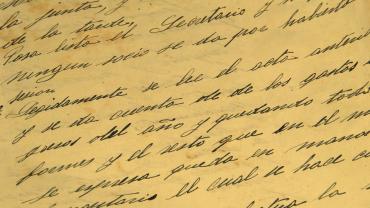 la junta, y
de la tarde,
Pasa lista el Secretario y
ningun socio se da por habierto
sesion
Seguidamente se lee el acta anteri
y se da cuenta de de los gastos
gresos del año y quedando todo
formes y el resto que en el m
se espresa queda en mano
el cual se hace c
la